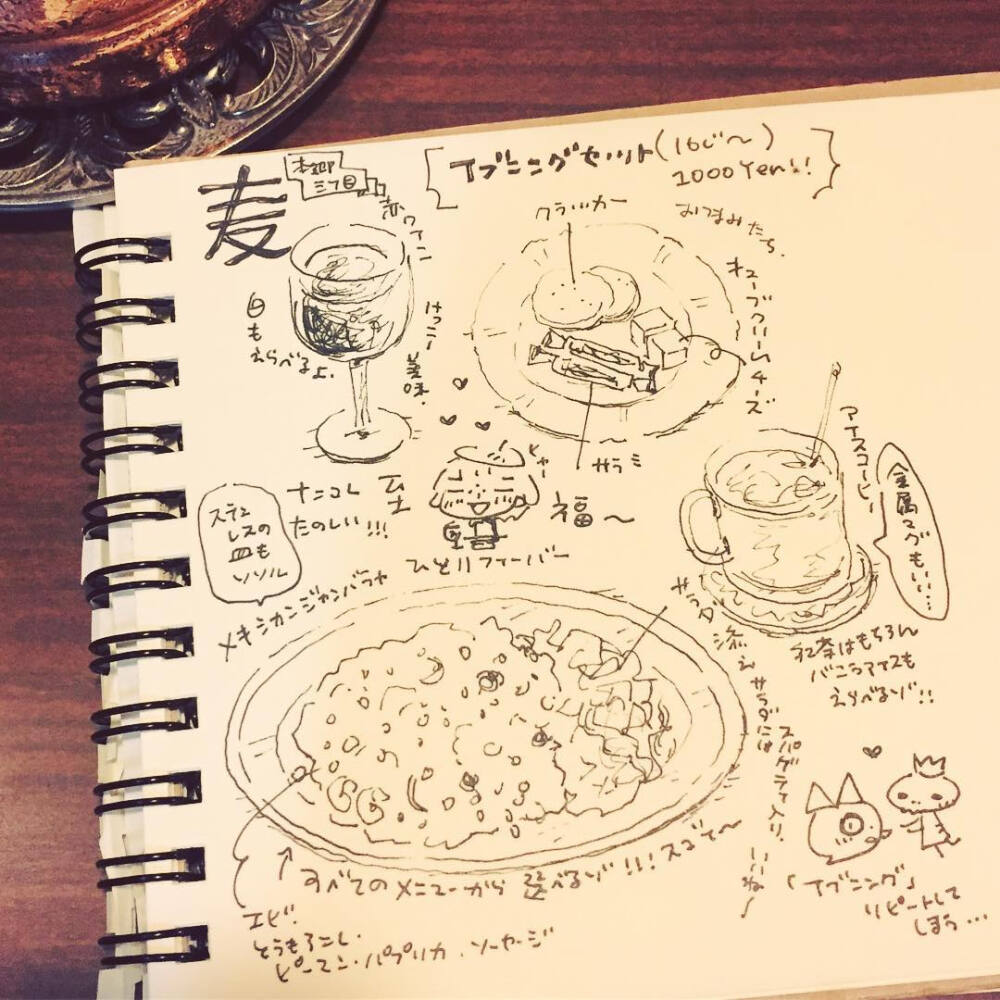 麦
本郷
三丁目
イブニングセット(16じ〜)
1000Yen!!
赤ワイン
白も
えらべるよ.
けっこー
美味.
クラッカー
おつまみたち.
キューブクリームチーズ
サラミ
ヒャー
福〜
ひとりフィーバー
ナニコレ
たのしい!!!
ステン
レスの
皿も
ソソル
アイスコーヒー
金属マグもいい…
紅茶はもちろん
バニラアイスも
えらべるゾ!!
メキシカンジャンバラヤ
サラダ
添えサラダには
スパゲティ入り.
いいね〜
すべてのメニューから選べるゾ!!!スゴイ〜
エビ!
とうもろこし.
ピーマン・パプリカ.ソーセージ
「イブニング」
リピートして
しまう…